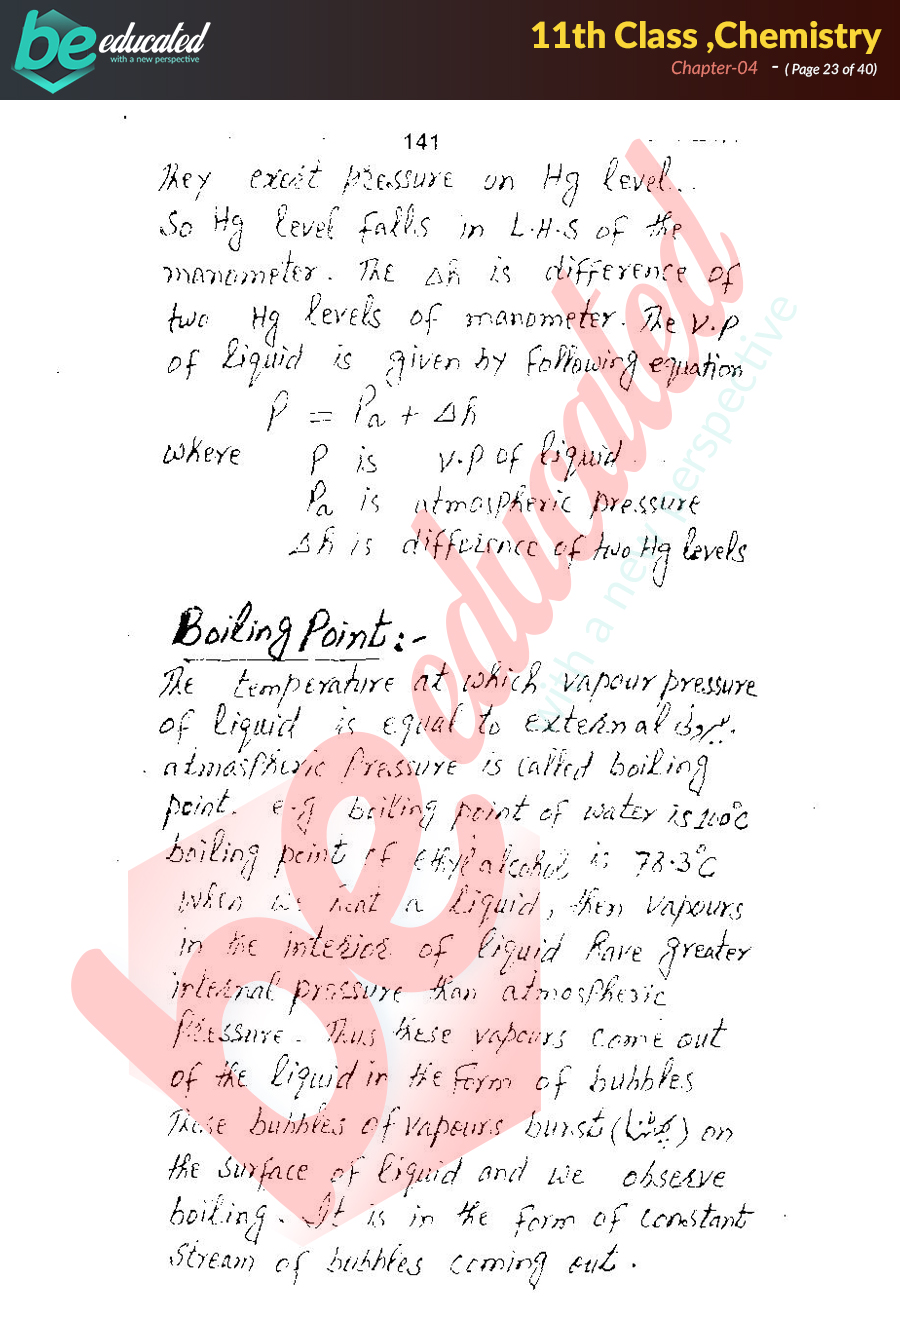 be educated
with a new perspective
11th Class ,Chemistry
Chapter-04 - ( Page 23 of 40)
141
They exert pressure on Hg level..
So Hg level falls in L.H.S of the
manometer. The Δh is difference of
two Hg levels of manometer. The V.P
of liquid is given by following equation
P = Pa + Δh
where P is V.P of liquid
Pa is atmospheric pressure
Δh is difference of two Hg levels
Boiling Point:-
The temperature at which vapour pressure
of liquid is equal to external بیرونی
atmospheric pressure is called boiling
point. e.g boiling point of water is 100°C
boiling point of ethyl alcohol is 78.3°C
When we heat a liquid, then vapours
in the interior of liquid have greater
internal pressure than atmospheric
pressure. Thus these vapours come out
of the liquid in the form of bubbles
These bubbles of vapours burst (پھٹنا) on
the surface of liquid and we observe
boiling. It is in the form of constant
stream of bubbles coming out.
be educated
with a new perspective